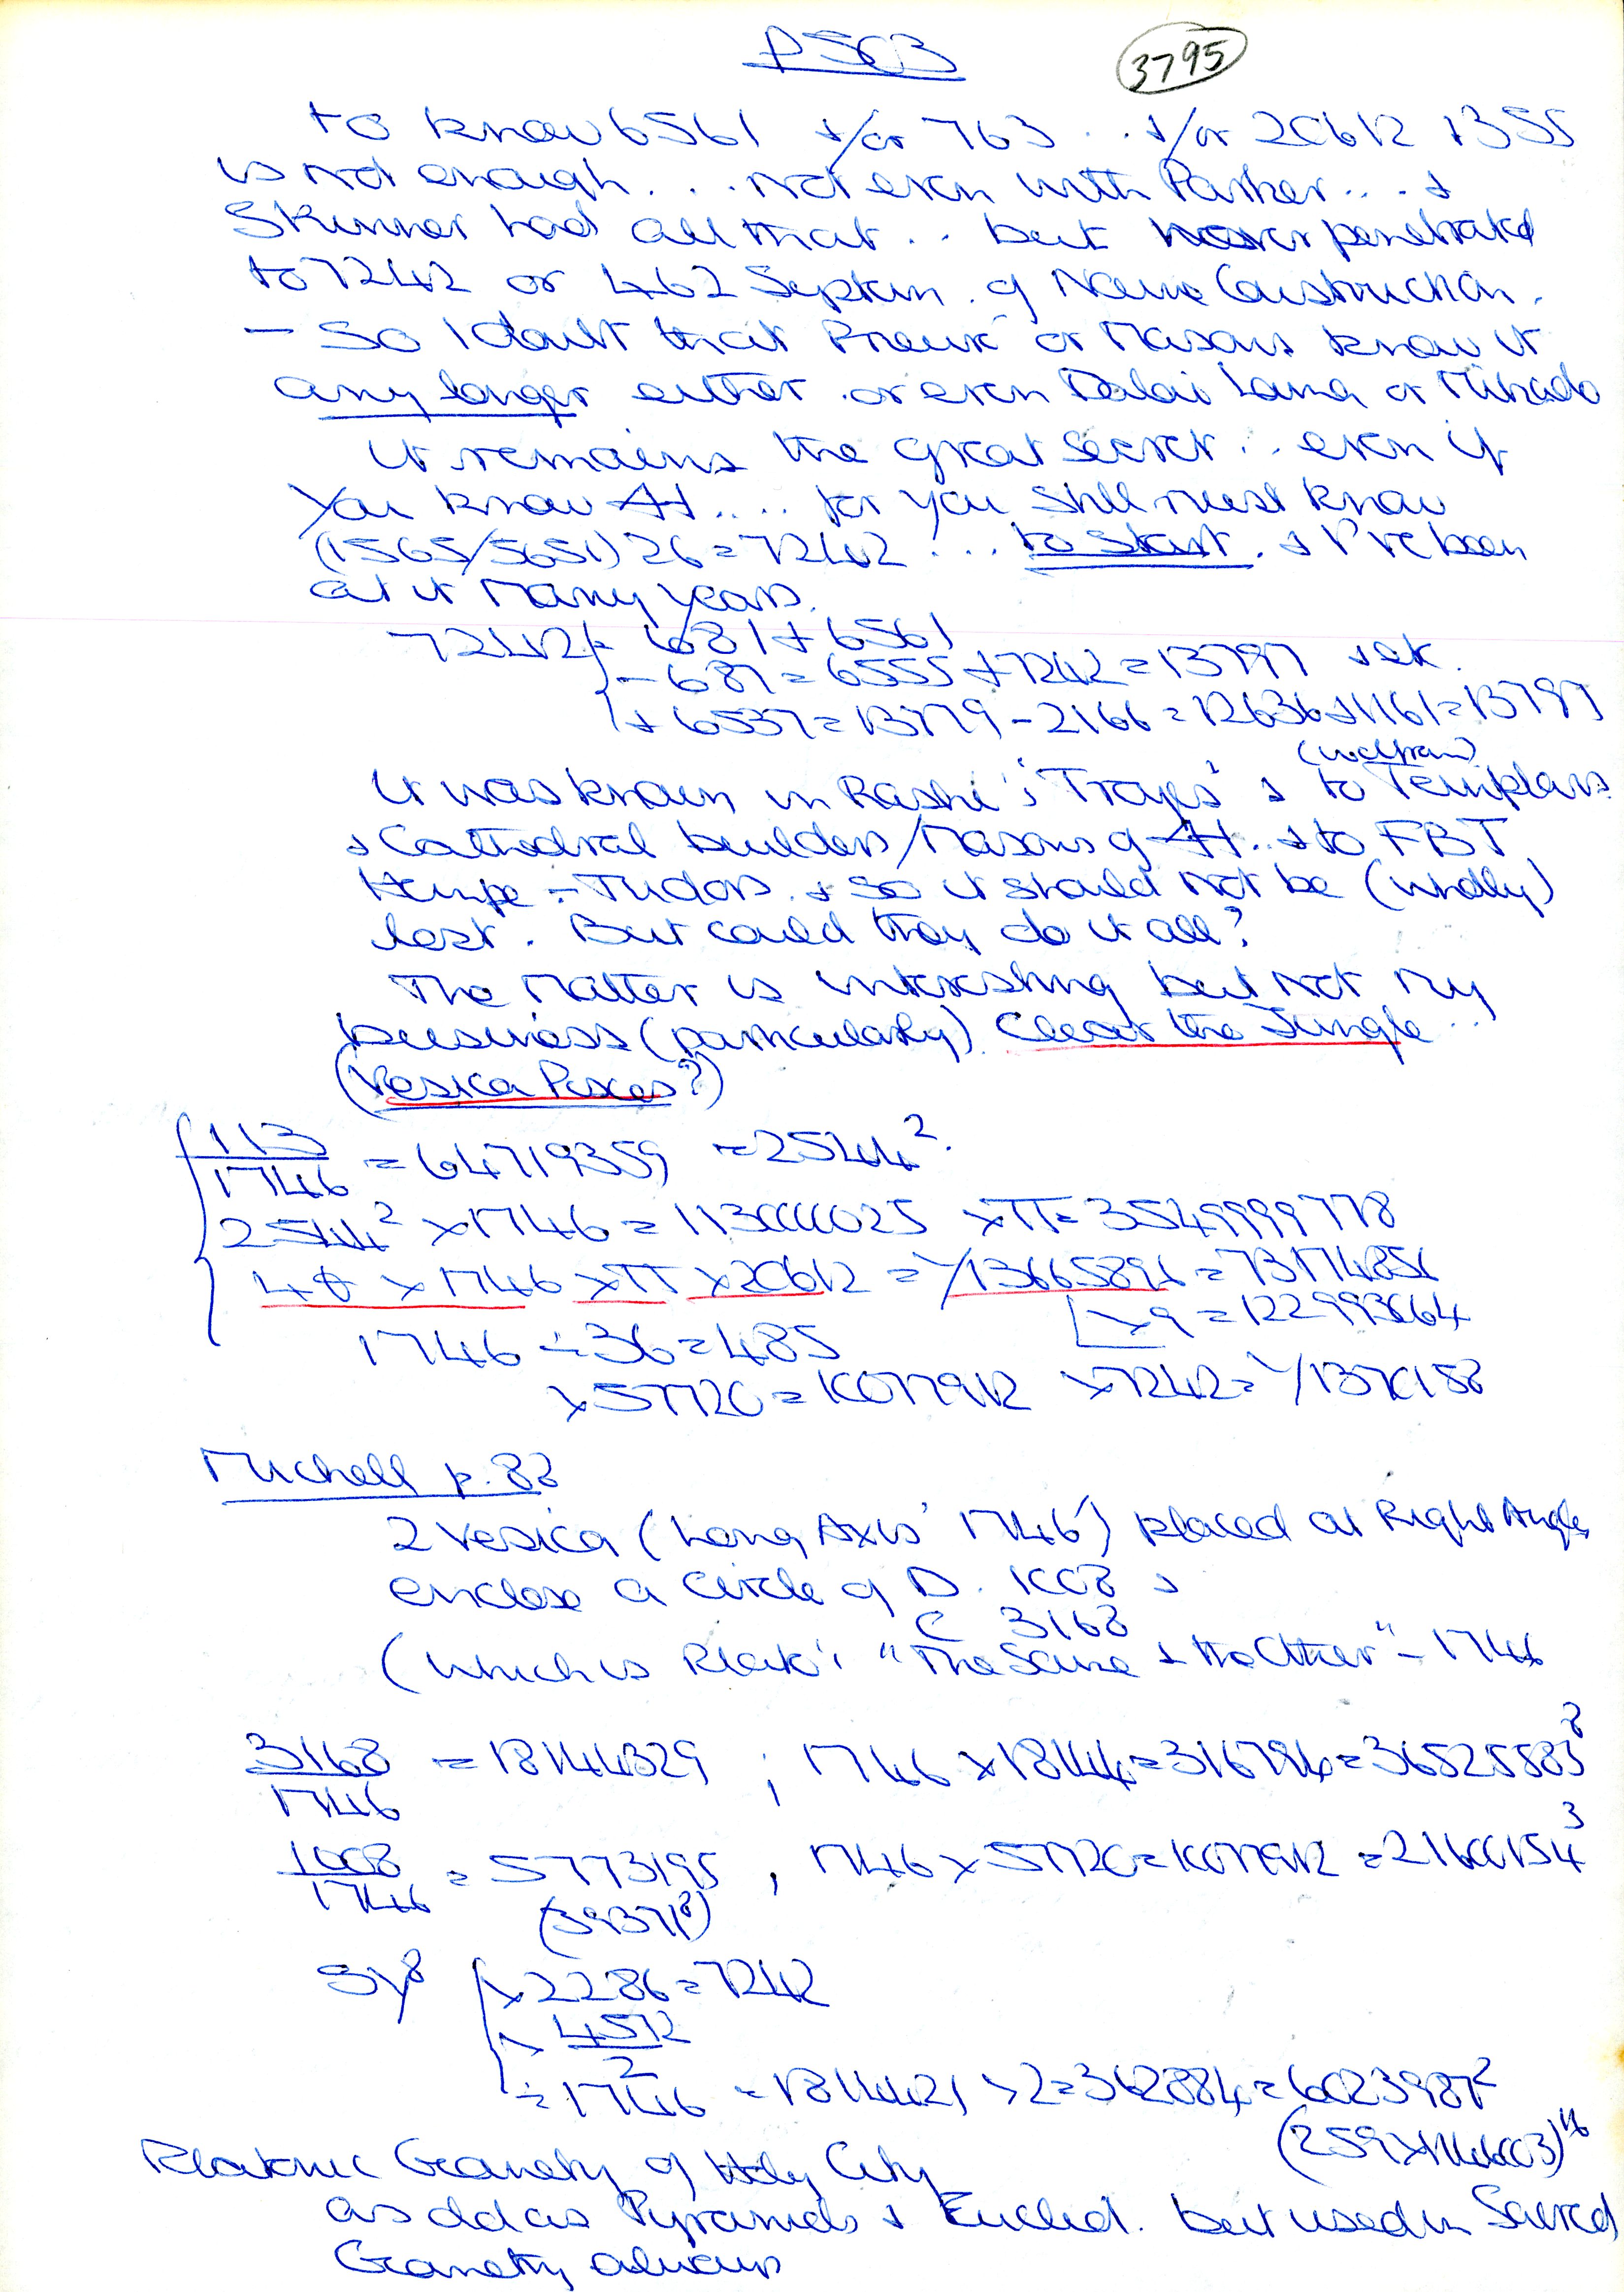 P503
3795
to know 6561 +/or 763 .. +/or 20612 + 355
is not enough ... not even with Parker ... +
Skinner had all that .. but never penetrated
to 7242 or 462 Septen. of Name Construction.
— So I doubt that or Masons know it
any longer either .. or even Dalai Lama or Mikado
It remains the great secret .. even if
you know .... for you still must know
(1565/5651) 26 = 7242 ... to start. + I've been
at it Many years.
7242 - 681 + 6561
- 687 = 6555 + 7242 = 13797 + etc.
+ 6537 = 13779 - 2166 = 12636 + 1161 = 13797
(Wolfram)
It was known in Rashi's 'Troyes' + to Templars
+ Cathedral builders/Masons of .. + to FBT
- Tudors. + so it should not be (wholly)
lost. But could they do it all?
The Matter is interesting but not my
business (particularly). Clear the Jungle ..
(Vesica Pisces?)
113/1746 = 64719359 = 2544².
2544² x 1746 = 113000025 x π = 3549999778
x 1746 x π x 20612 = √13665896 = 73174856
x 9 = 122993064
1746 ÷ 36 = 485
x 57720 = 10077912 x 7242 = √1370188
Michell p. 88
2 Vesica (Long Axis '1746') placed at Right Angles
enclose a circle of D. 1008 +
C 3168
(which is Plato's "The Same + the Other" – 1746
3168/1746 = 18144329 ; 1746 x 18144 = 316794 = 36525583⁸
1008/1746 = 5773195 , 1746 x 57720 = 10077912 = 2160154³
(39371⁸)
x 2286 = 7242
x 4572/2
÷ 1746 = 1814421 x 2 = 362884 = 6023987²
(259 x )¹⁶
Platonic Geometry of Holy City
as old as Pyramids + Euclid. but used in Sacred
Geometry always